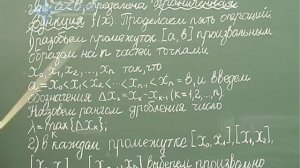 a<b, определена ограниченная
функция f(x). Проделаем пять операций.
1) разобьем промежуток [a, b] произвольным
образом на n частей точками
x₀, x₁, x₂, ..., xₙ так, что
a = x₀ < x₁ < x₂ < ... < xₙ = b, и введем
обозначения Δxₖ = xₖ - xₖ₋₁ (k=1,2,..,n).
Назовем рангом дробления число
λ = max{Δxₖ};
2) в каждом промежутке [x₀, x₁], [x₁, x₂],
выберем произвольно